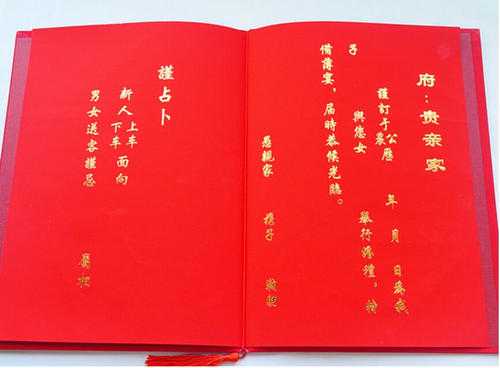 府：贵亲家
謹訂于公歷農 年 月 日為我
子 與您女 舉行婚禮，特
備薄宴，届時恭候光臨。
愚親家 携子
謹占卜
新人上車下車面向
男女送客謹忌